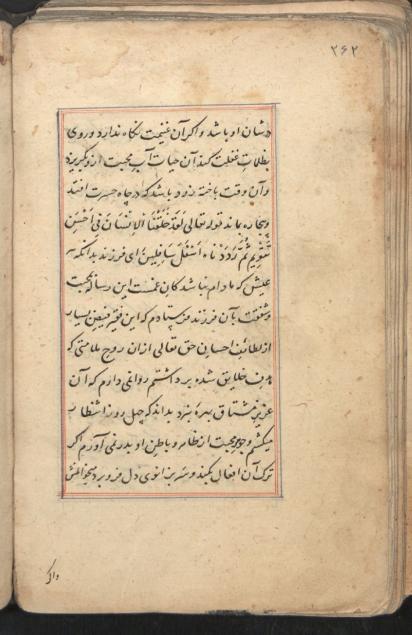 ۲۶۲
شان او باشد و اگر آن غنیمت نگاه ندارد و روی
بظلمات غفلت کند آن حیات آب محبت ازو بگریزد
و آن وقت باخته زود باشد که در چاه حسرت افتد
و بیچاره ماند قوله تعالی لَقَدْ خَلَقْنَا الْاِنْسَانَ فِی اَحْسَنِ
تَقْوِیمٍ ثُمَّ رَدَدْنَاهُ اَسْفَلَ سَافِلِینَ ای فرزند بدانکه
که مادام این رساله محبت
و شفقت بآن فرزند فرستادم که این فقیر فیض بسیار
از لطائف احسان حق تعالی ازان روح ملامتی که
خلایق شده برداشتم روا نمی دارم که آن
عزیز مشتاق بهره نبرد بداند که چهل روز انتظار
میکشم و محبت از ظاهر و باطن او بدر نمی آورم اگر
ترک آن افعال نکند و سر بزانوی دل فرو برد